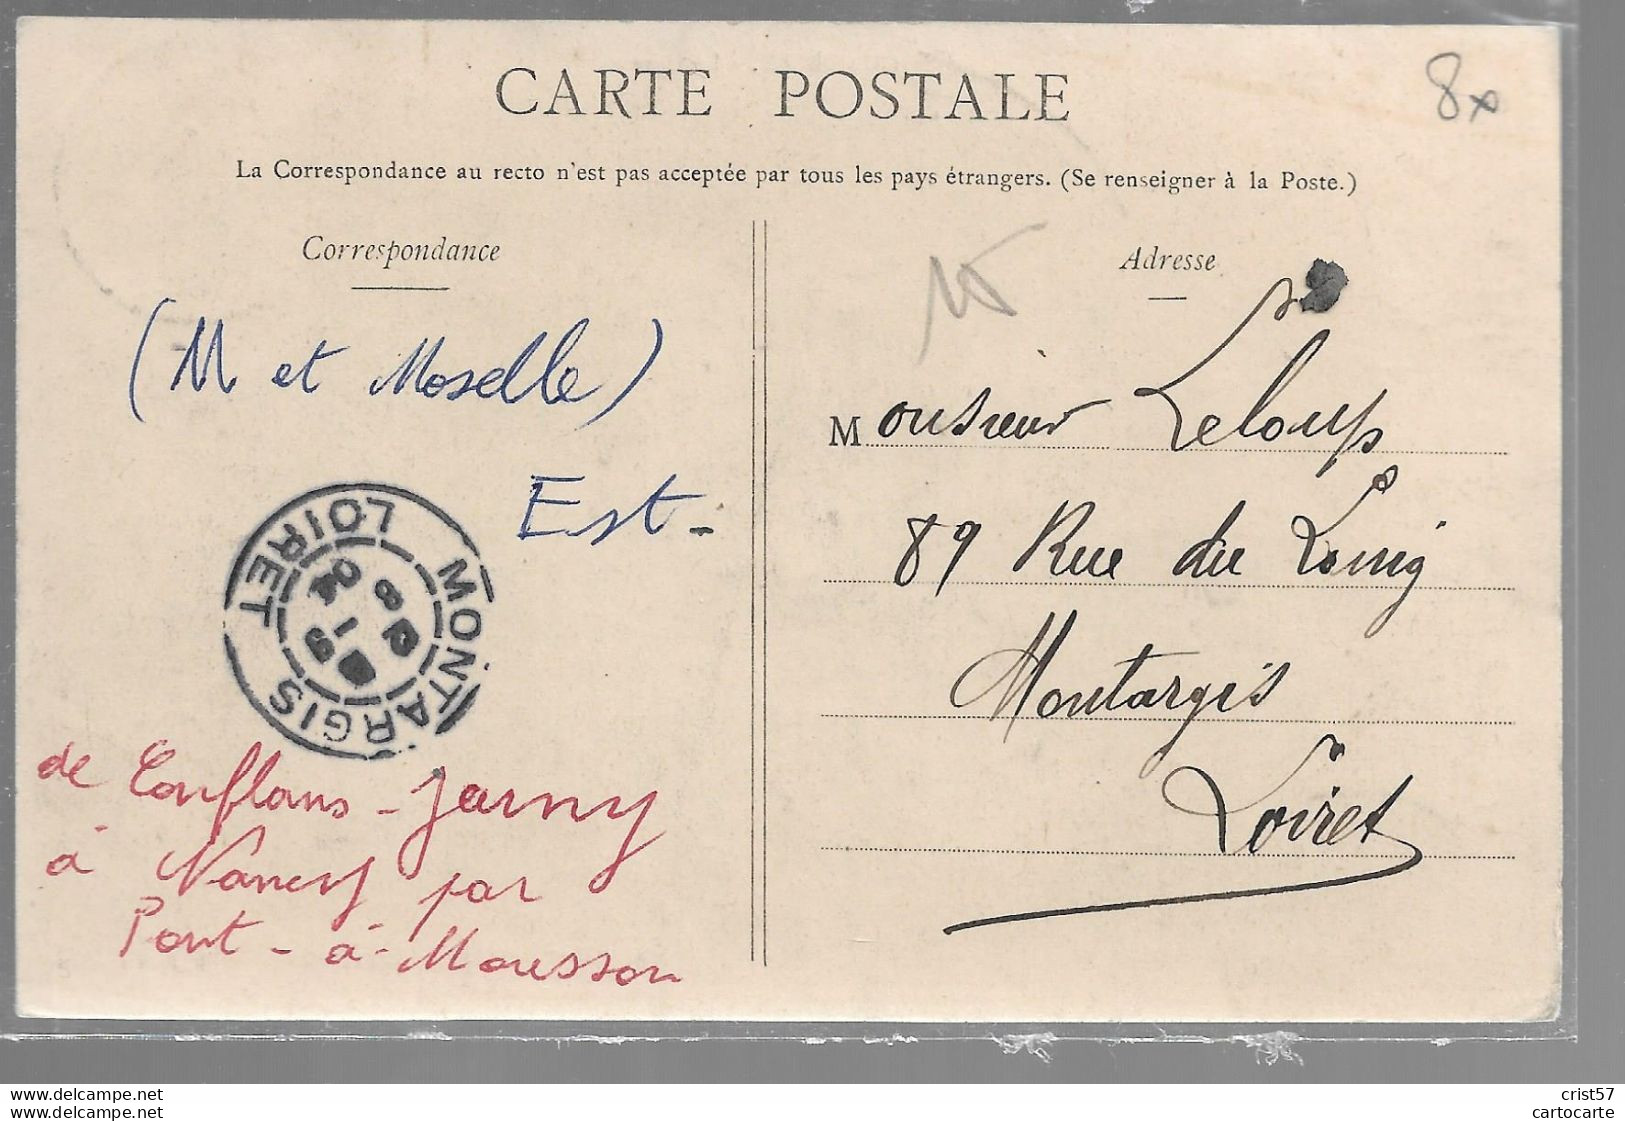 CARTE POSTALE
8x
La Correspondance au recto n'est pas acceptée par tous les pays étrangers. (Se renseigner à la Poste.)
Correspondance
(M et Moselle)
Est-
MONTARGIS
LOIRET
de Conflans-Jarny
à Nancy par
Pont-à-Mousson
Adresse
Monsieur Leloup
89 Rue du Loing
Montargis
Loiret
delcampe.net
delcampe.net
crist57
cartocarte